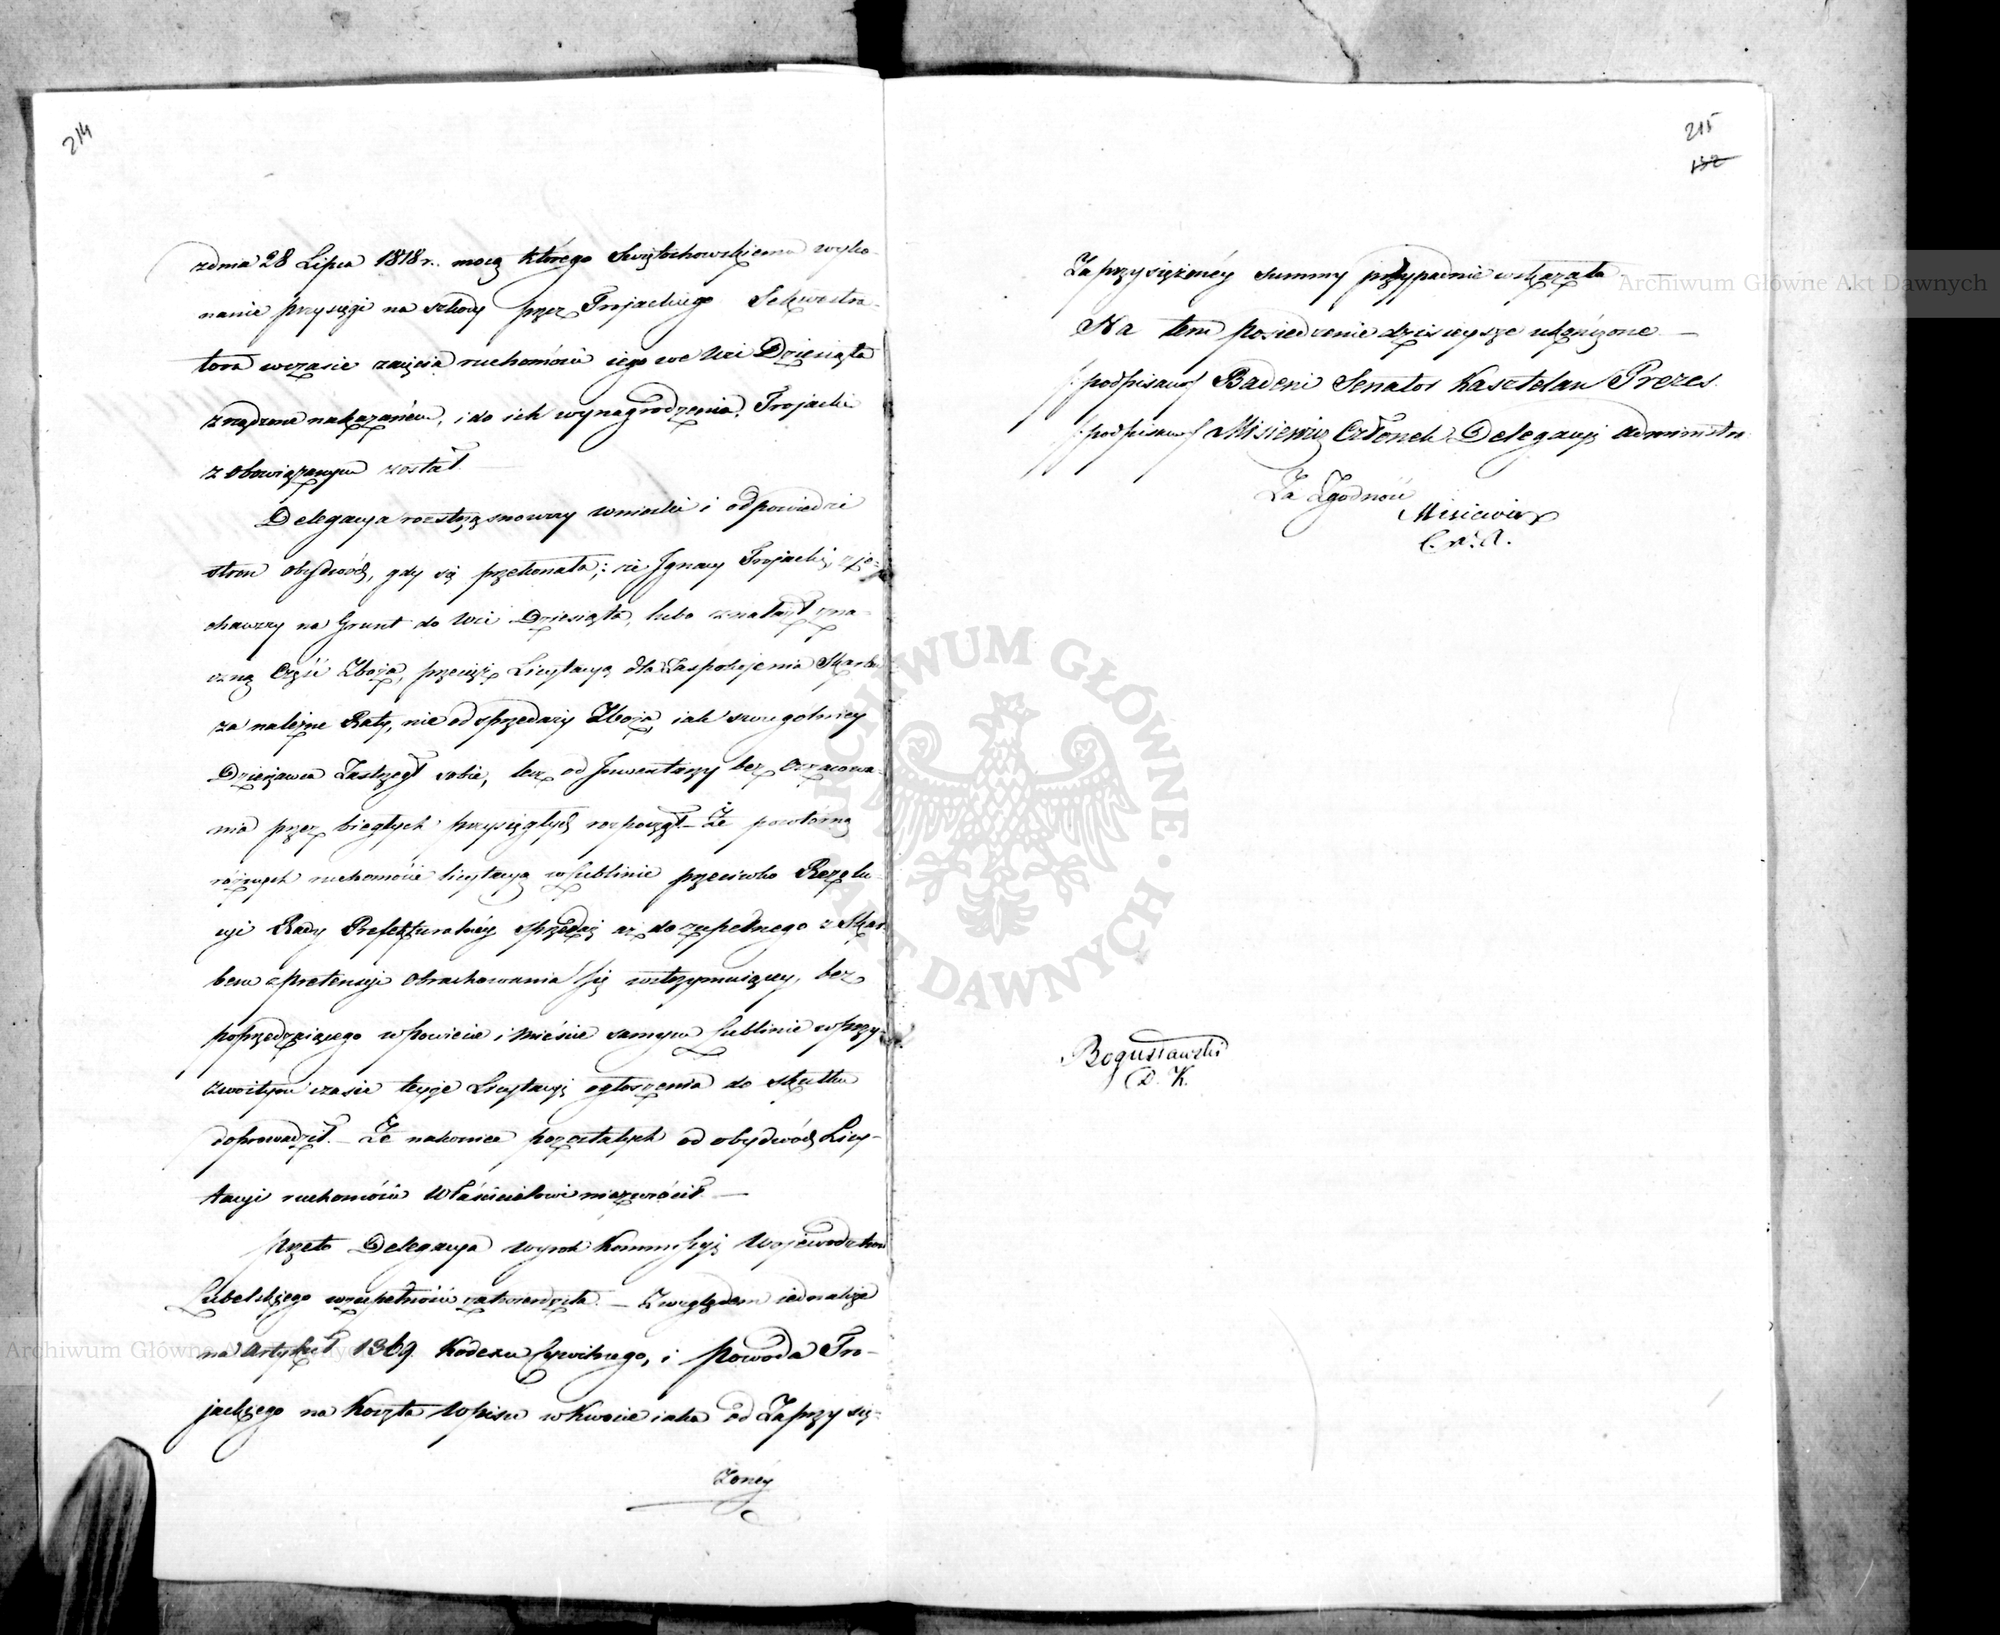 214
zdnia 28 Lipca 1818 r. mocą którego Swiętochowskiemu wyko-
nanie przysięgi na szkody przez Trojackiego Sekwestra-
tora wczasie zaięcia ruchomości iego we Wsi Dziesiąta
zrządzone nakazanem, i do ich wynagrodzenia, Trojacki
zobowiązanym został.
Delegacya roztrząsnąwszy wnioski i odpowiedzi
stron obydwóch, gdy się przekonała; że Ignacy Trojacki zje-
chawszy na Grunt do Wsi Dziesiąta, lubo znalazł zna-
czną Część Zboża, przecięż Licytacyą dla Zaspokojenia Skarbu
za należne Raty, nie od sprzedaży Zboża, iak szczegolniey
Dzierżawca Zastrzegł sobie, lecz od Inwentarzy bez Oszacowa-
nia przez biegłych przysięgłych rozpoczął – Że powtórną
różnych ruchomości licytacyą w Lublinie przeciwko Rezolu-
cyi Rady Prefekturalnéy sprzedaż aż do zupełnego z Skar-
bem z pretensyi Obrachowania się wstrzymuiącey, bez
poprzedzaiącego w Powiecie i Mieście samym Lublinie w przy-
zwoitym czasie teyże Licytacyi ogłoszenia do skutku
doprowadził. – Że nakoniec pozostałych od obydwóch Licy-
tacyi ruchomości Właścicielowi niezwrócił. –
przeto Delegacya wyrok Kommissyi Woiewodztwa
Lubelskiego wzupełności zatwierdziła. – Zwzględem iednakże
na Artykuł 1369. Kodexu Cywilnego, i powoda Tro-
jackiego na Koszta Wpisu w Kwocie iaka od Zaprzysię-
żonéy
215
132
Zaprzysiężonéy Summy przypadnie wskazała.
Na tem posiedzenie dzisieysze ukończone –
/podpisano/ Badeni Senator Kasztelan Prezes.
/podpisano/ Misiewicz Członek Delegacyi Administra.
Za Zgodność
Misiewicz
C. D. A.
Bogusławski
D. K.
Archiwum Główne Akt Dawnych
ARCHIWUM GŁÓWNE AKT DAWNYCH
Archiwum Główne Akt Dawnych